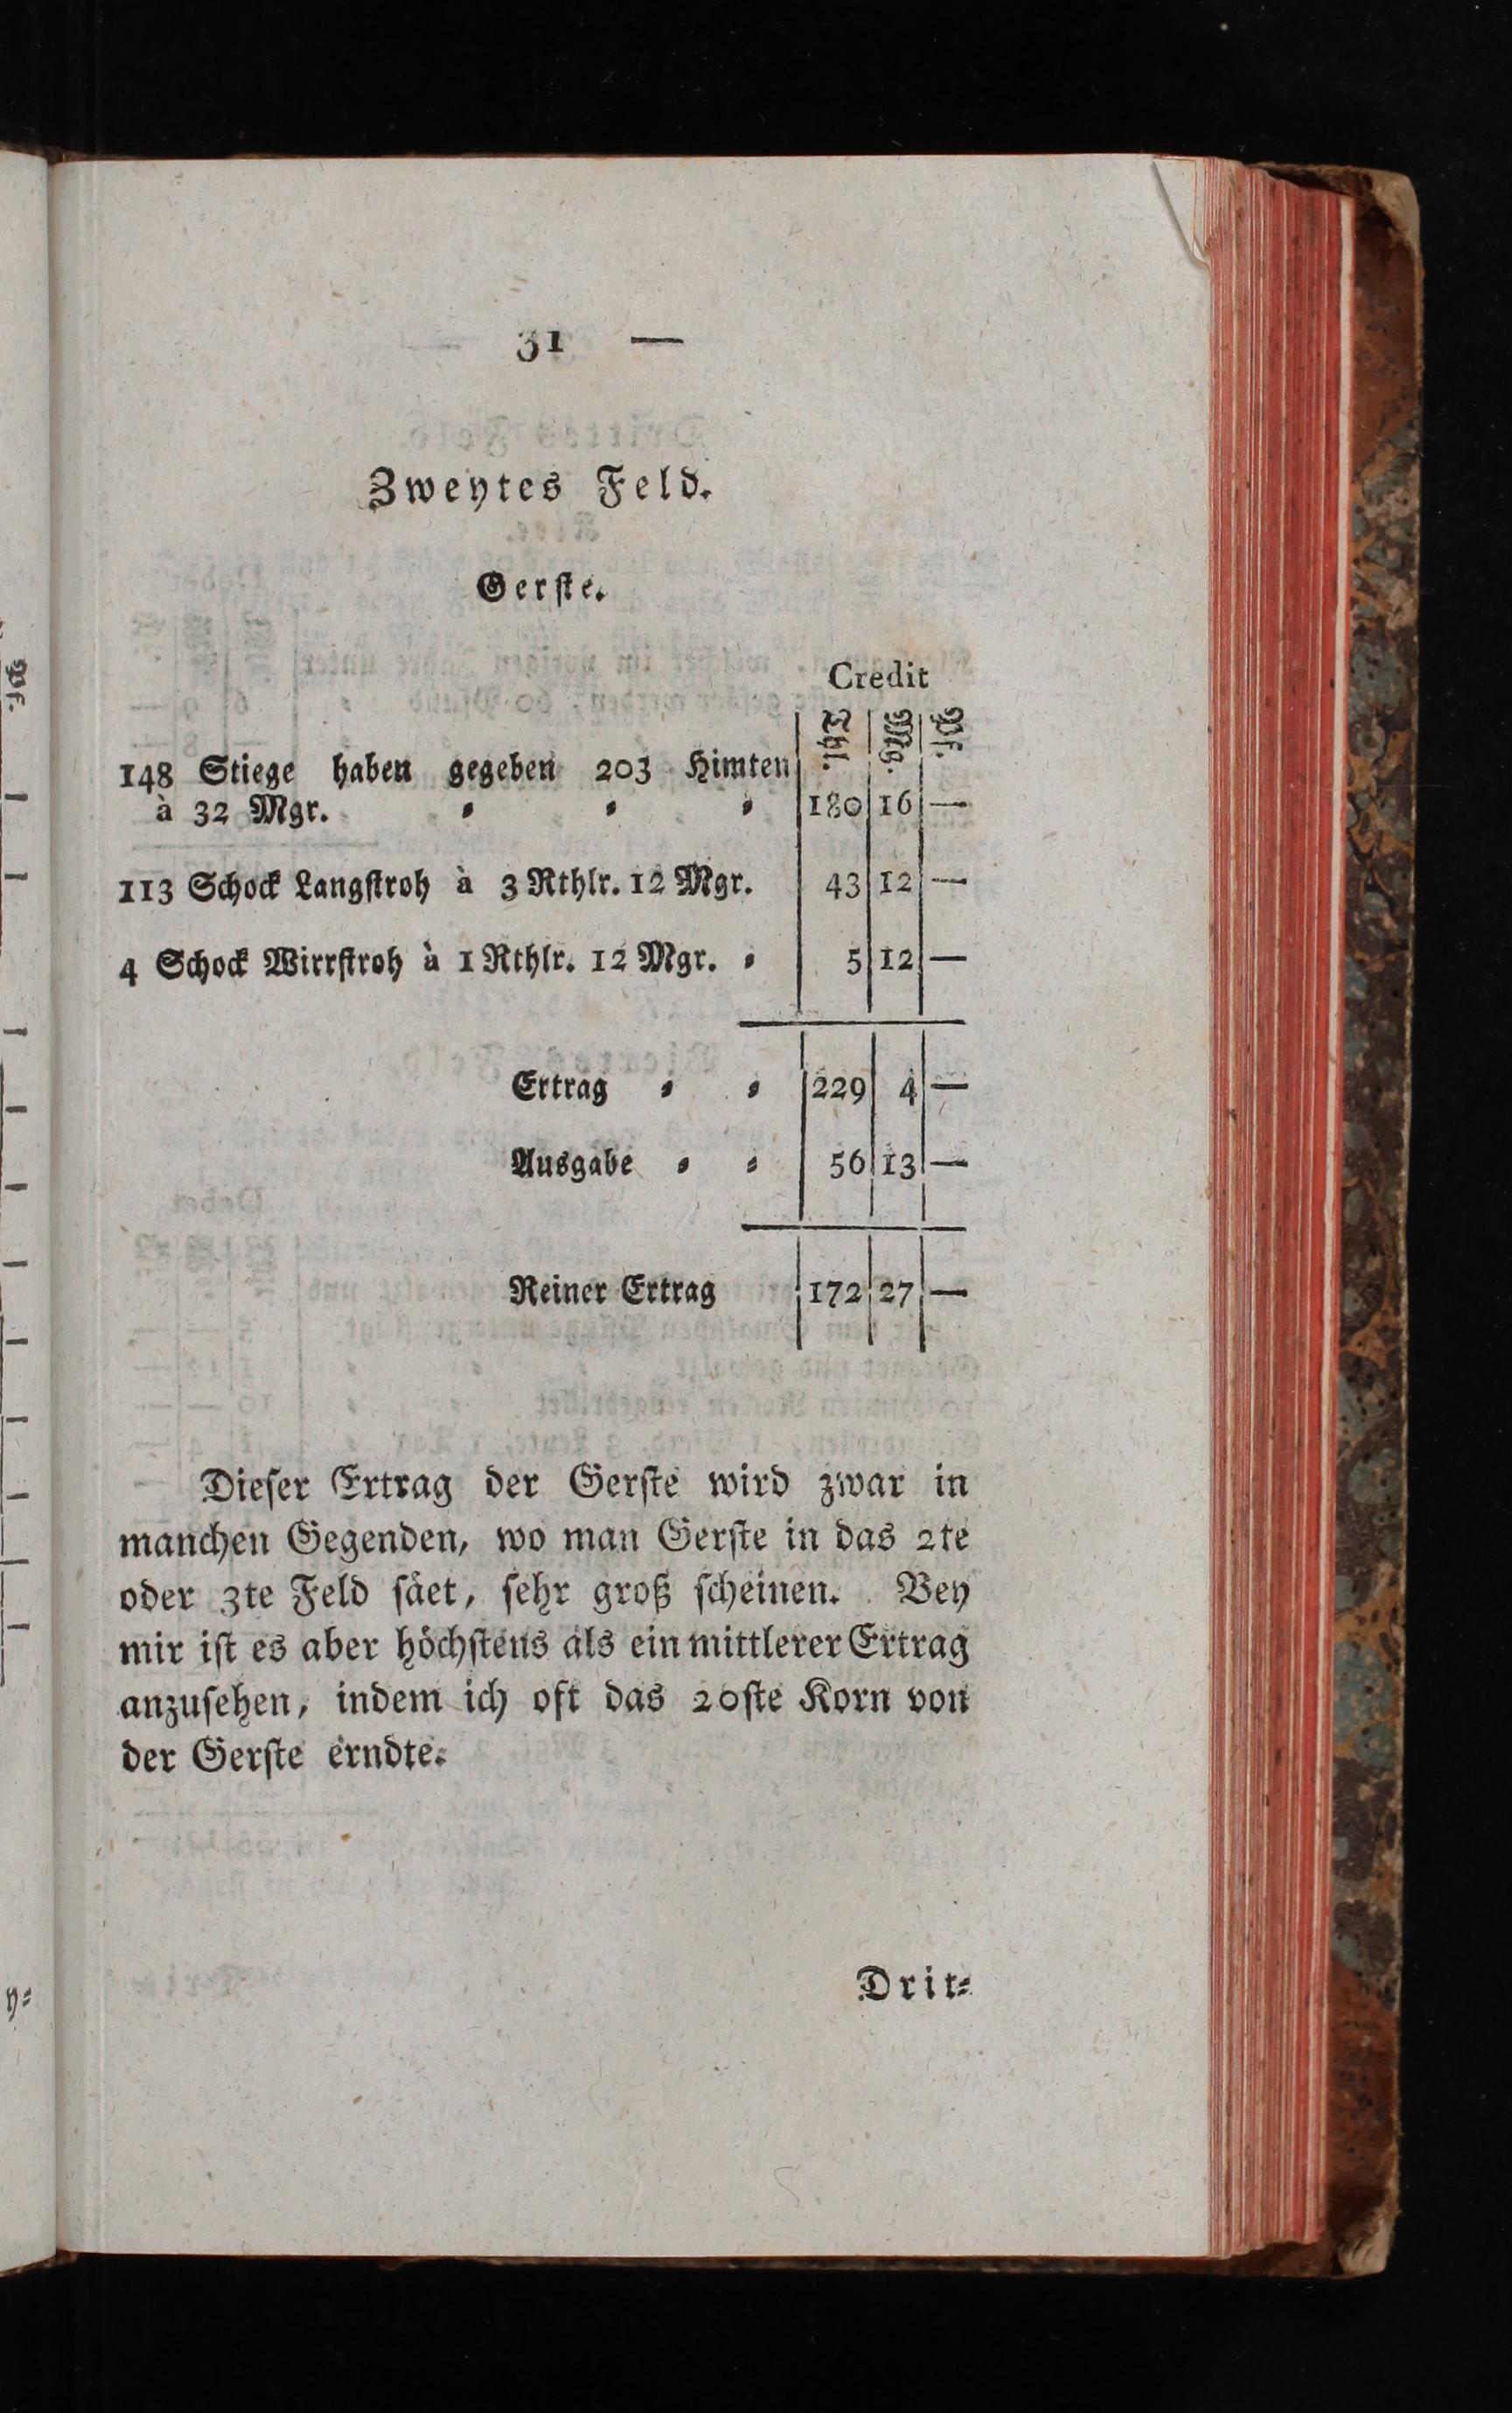 31 —
Zweytes Feld.
Gerſte.
Credit
Thl. Mg. Pf.
148 Stiege haben gegeben 203 Himten
à 32 Mgr. ⸗ ⸗ ⸗ 180 16 —
113 Schock Langſtroh à 3 Rthlr. 12 Mgr. 43 12 —
4 Schock Wirrſtroh à 1 Rthlr. 12 Mgr. ⸗ 5 12 —
Ertrag ⸗ ⸗ 229 4 —
Ausgabe ⸗ ⸗ 56 13 —
Reiner Ertrag 172 27 —
Dieſer Ertrag der Gerſte wird zwar in
manchen Gegenden, wo man Gerſte in das 2te
oder 3te Feld ſäet, ſehr groß ſcheinen. Bey
mir iſt es aber höchſtens als ein mittlerer Ertrag
anzuſehen, indem ich oft das 20ſte Korn von
der Gerſte erndte.
Drit⸗
Pf.
y⸗